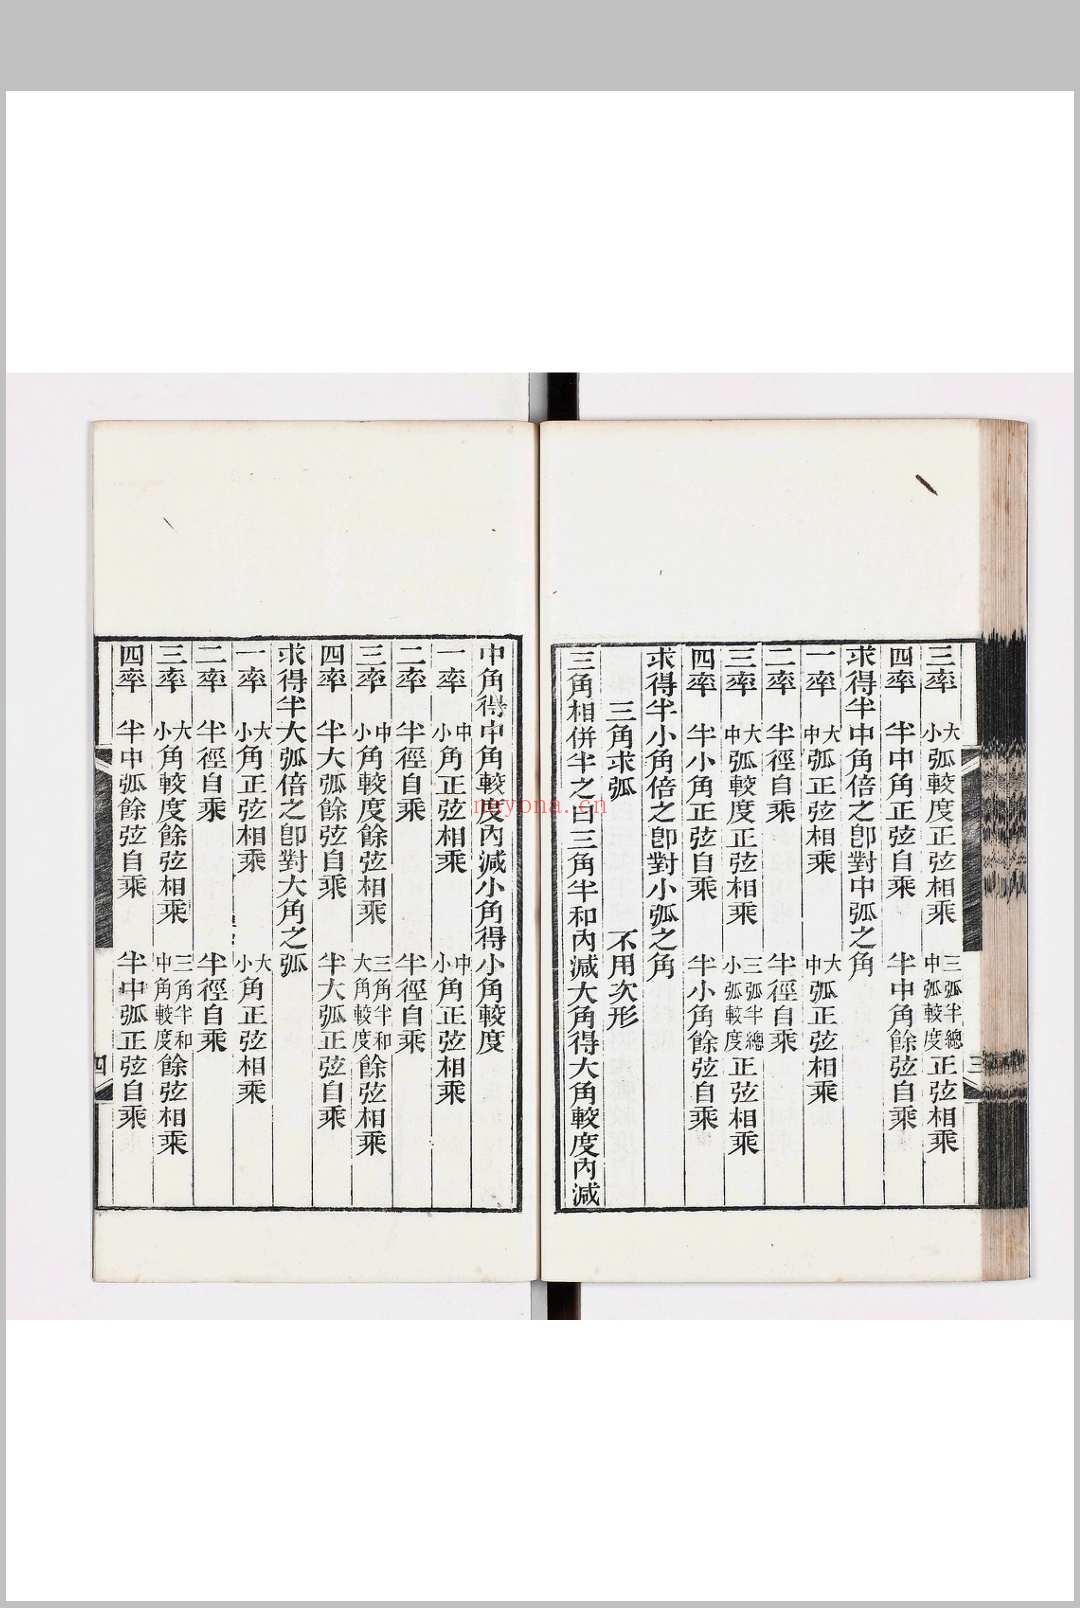 三率　大小弧較度正弦相乘　三弧半總中弧較度正弦相乘
四率　半中角正弦自乘　半中角餘弦自乘
求得半中角倍之卽對中弧之角
一率　大中弧正弦相乘　大中弧正弦相乘
二率　半徑自乘　半徑自乘
三率　大中弧較度正弦相乘　三弧半總小弧較度正弦相乘
四率　半小角正弦自乘　半小角餘弦自乘
求得半小角倍之卽對小弧之角
三角求弧　不用次形
三角相併半之曰三角半和內減大角得大角較度內減
三
中角得中角較度內減小角得小角較度
一率　中小角正弦相乘　中小角正弦相乘
二率　半徑自乘　半徑自乘
三率　中小角較度餘弦相乘　三角半和大角較度餘弦相乘
四率　半大弧餘弦自乘　半大弧正弦自乘
求得半大弧倍之卽對大角之弧
一率　大小角正弦相乘　大小角正弦相乘
二率　半徑自乘　半徑自乘
三率　大小角較度餘弦相乘　三角半和中角較度餘弦相乘
四率　半中弧餘弦自乘　半中弧正弦自乘
四
nayona.cn